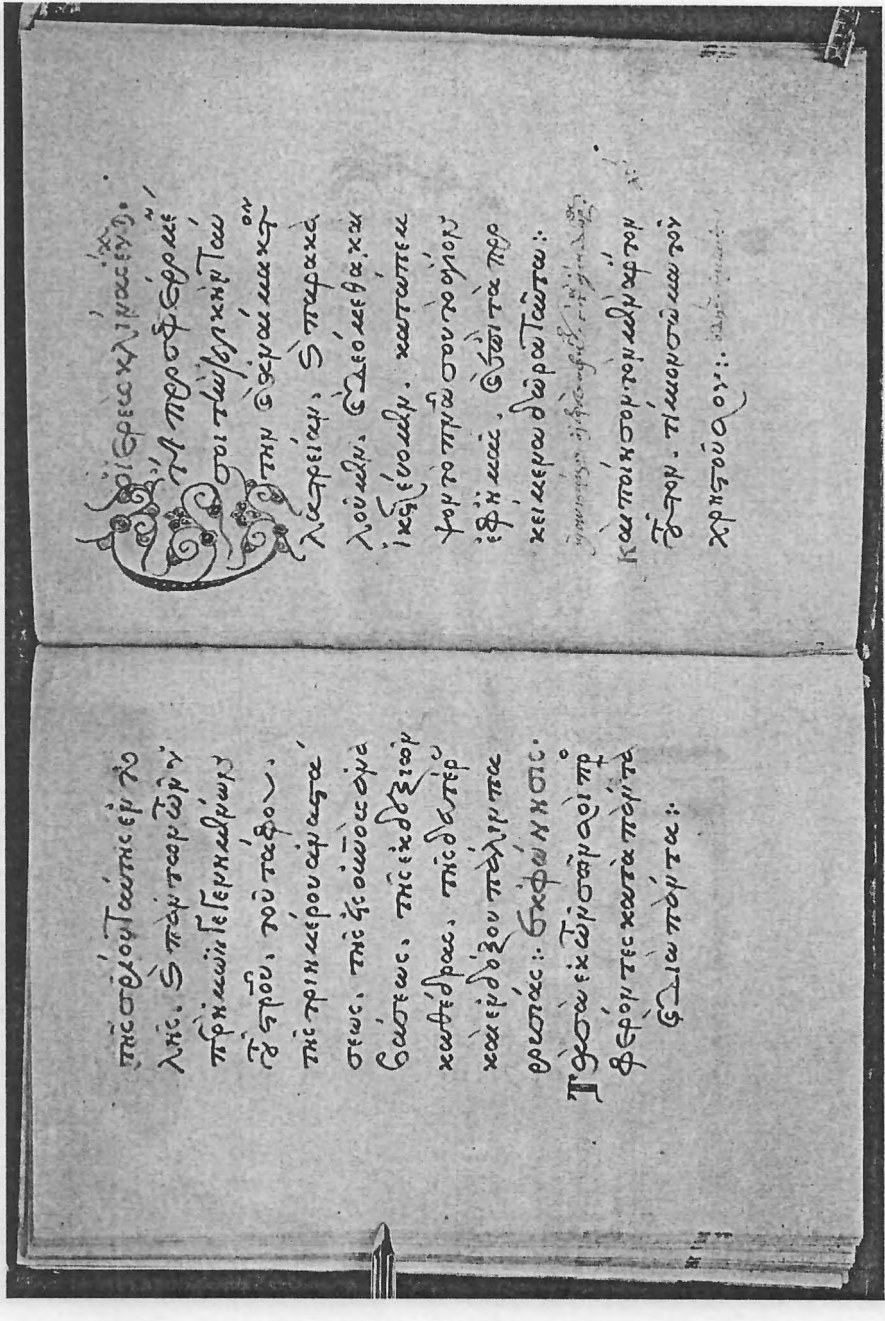 τῆς σρίου ταύτης ἐντο
λῆς. καὶ πάντων τῶν ὑ
πὲρ ἡμῶν γεγενημένων
τοῦ στροῦ. τοῦ τάφου.
τῆς τριημέρου ἀναστά
σεως. τῆς εἰς οὐνοὺς ἀνα
βάσεως. τῆς ἐκ δεξιῶν
καθέδρας. τῆς δευτέρ
καὶ ἐνδόξου πάλιν πα
ρουσίας: Ἐκφώνησις.
Τὰ σὰ ἐκ τῶν σῶν σοὶ πρ
φέροντες κατὰ πάντα
καὶ διὰ πάντα:
ὁ ἱερεὺς κλινας εὐχ.
Ἔτι προσφέρομέν
σοι τὴν λογικὴν ταύ
την καὶ ἀναίμακτον
λατρείαν. καὶ παρακα
λοῦμεν. καὶ δεόμεθα. καὶ
ἱκετεύομεν. κατάπεμ
ψον τὸ πνα σου τὸ ἅγιον
ἐφ' ἡμᾶς. καὶ ἐπὶ τὰ προ
κείμενα δῶρα ταῦτα:
Καὶ ποίησον τὸν μὲν ἄρτον
τοῦτον. τίμιον σῶμα τοῦ
χριστοῦ σου: